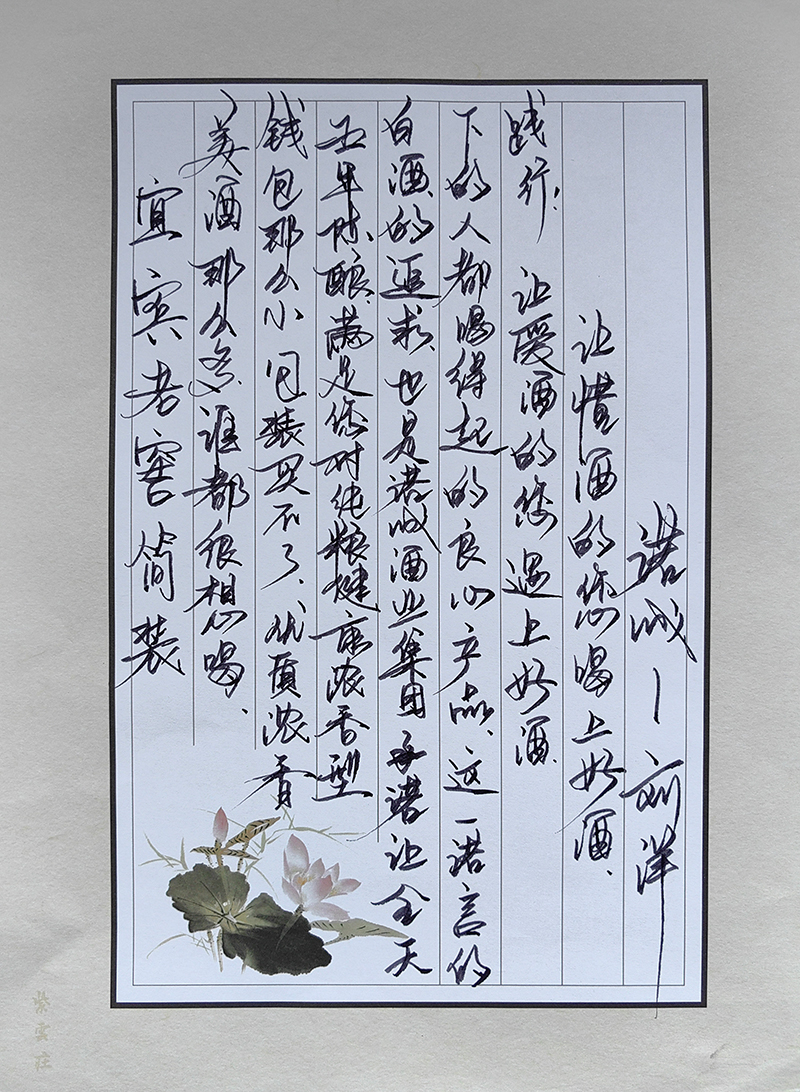 宜宾老窖简装
美酒那么多、谁都很想喝、
钱包那么小 包装买不了、优质浓香
五年陈酿、满足您对纯粮健康浓香型
白酒、的追求、也是诺诚酒业集团承诺让全天
下的人都喝得起的良心产品、这一诺言的
践行! 让爱酒的您遇上好酒、
让懂酒的您喝上好酒、
诺诚—刘洋
紫雲庄